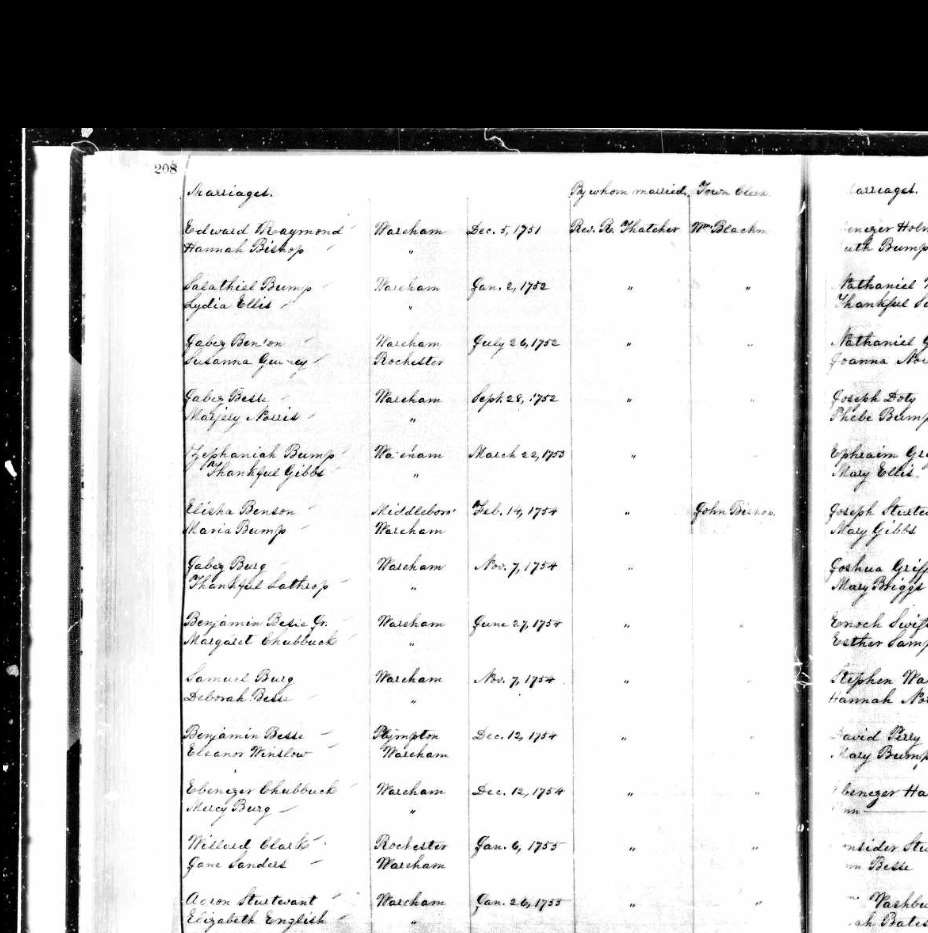 208
Marriages. By whom married. Town Clerk
Edward Raymond Wareham Dec. 5, 1751 Rev. R. Thatcher Wm Blackm
Hannah Bishop "
Salathiel Bump Wareham Jan. 2, 1752 " "
Lydia Ellis "
Jabez Benson Wareham July 26, 1752 " "
Susanna Gurney Rochester
Jabez Besse Wareham Sept. 28, 1752 " "
Marjery Norris "
Zephaniah Bump Wareham March 22, 1753 " "
Thankful Gibbs "
Elisha Benson Middleboro' Feb. 14, 1754 " John Bishop.
Maria Bump Wareham
Jabez Burg Wareham Nov. 7, 1754 " "
Thankful Lathrop "
Benjamin Besse Jr. Wareham June 27, 1754 " "
Margaret Chubbuck "
Samuel Burg Wareham Nov. 7, 1754 " "
Deborah Besse "
Benjamin Besse Plympton Dec. 12, 1754 " "
Eleanor Winslow Wareham
Ebenezer Chubbuck Wareham Dec. 12, 1754 " "
Mercy Burg "
Willard Clark Rochester Jan. 6, 1755 " "
Jane Sanders Wareham
Aaron Sturtevant Wareham Jan. 26, 1755 " "
Elizabeth English "
arriages.
enezer Holm
uth Bump
Nathaniel
Thankful
Nathaniel G
Joanna Nor
Joseph Doty
Phebe Bump
Ephraim Gri
Mary Ellis.
Joseph Sturte
Mary Gibbs
Joshua Griff
Mary Briggs
Enoch Swif
Esther Samp
Stephen Wa
Hannah Nor
David Perry
Mary Bump
Ebenezer Ha
nn
nsider Stu
nn Besse
Washbu
ah Bates